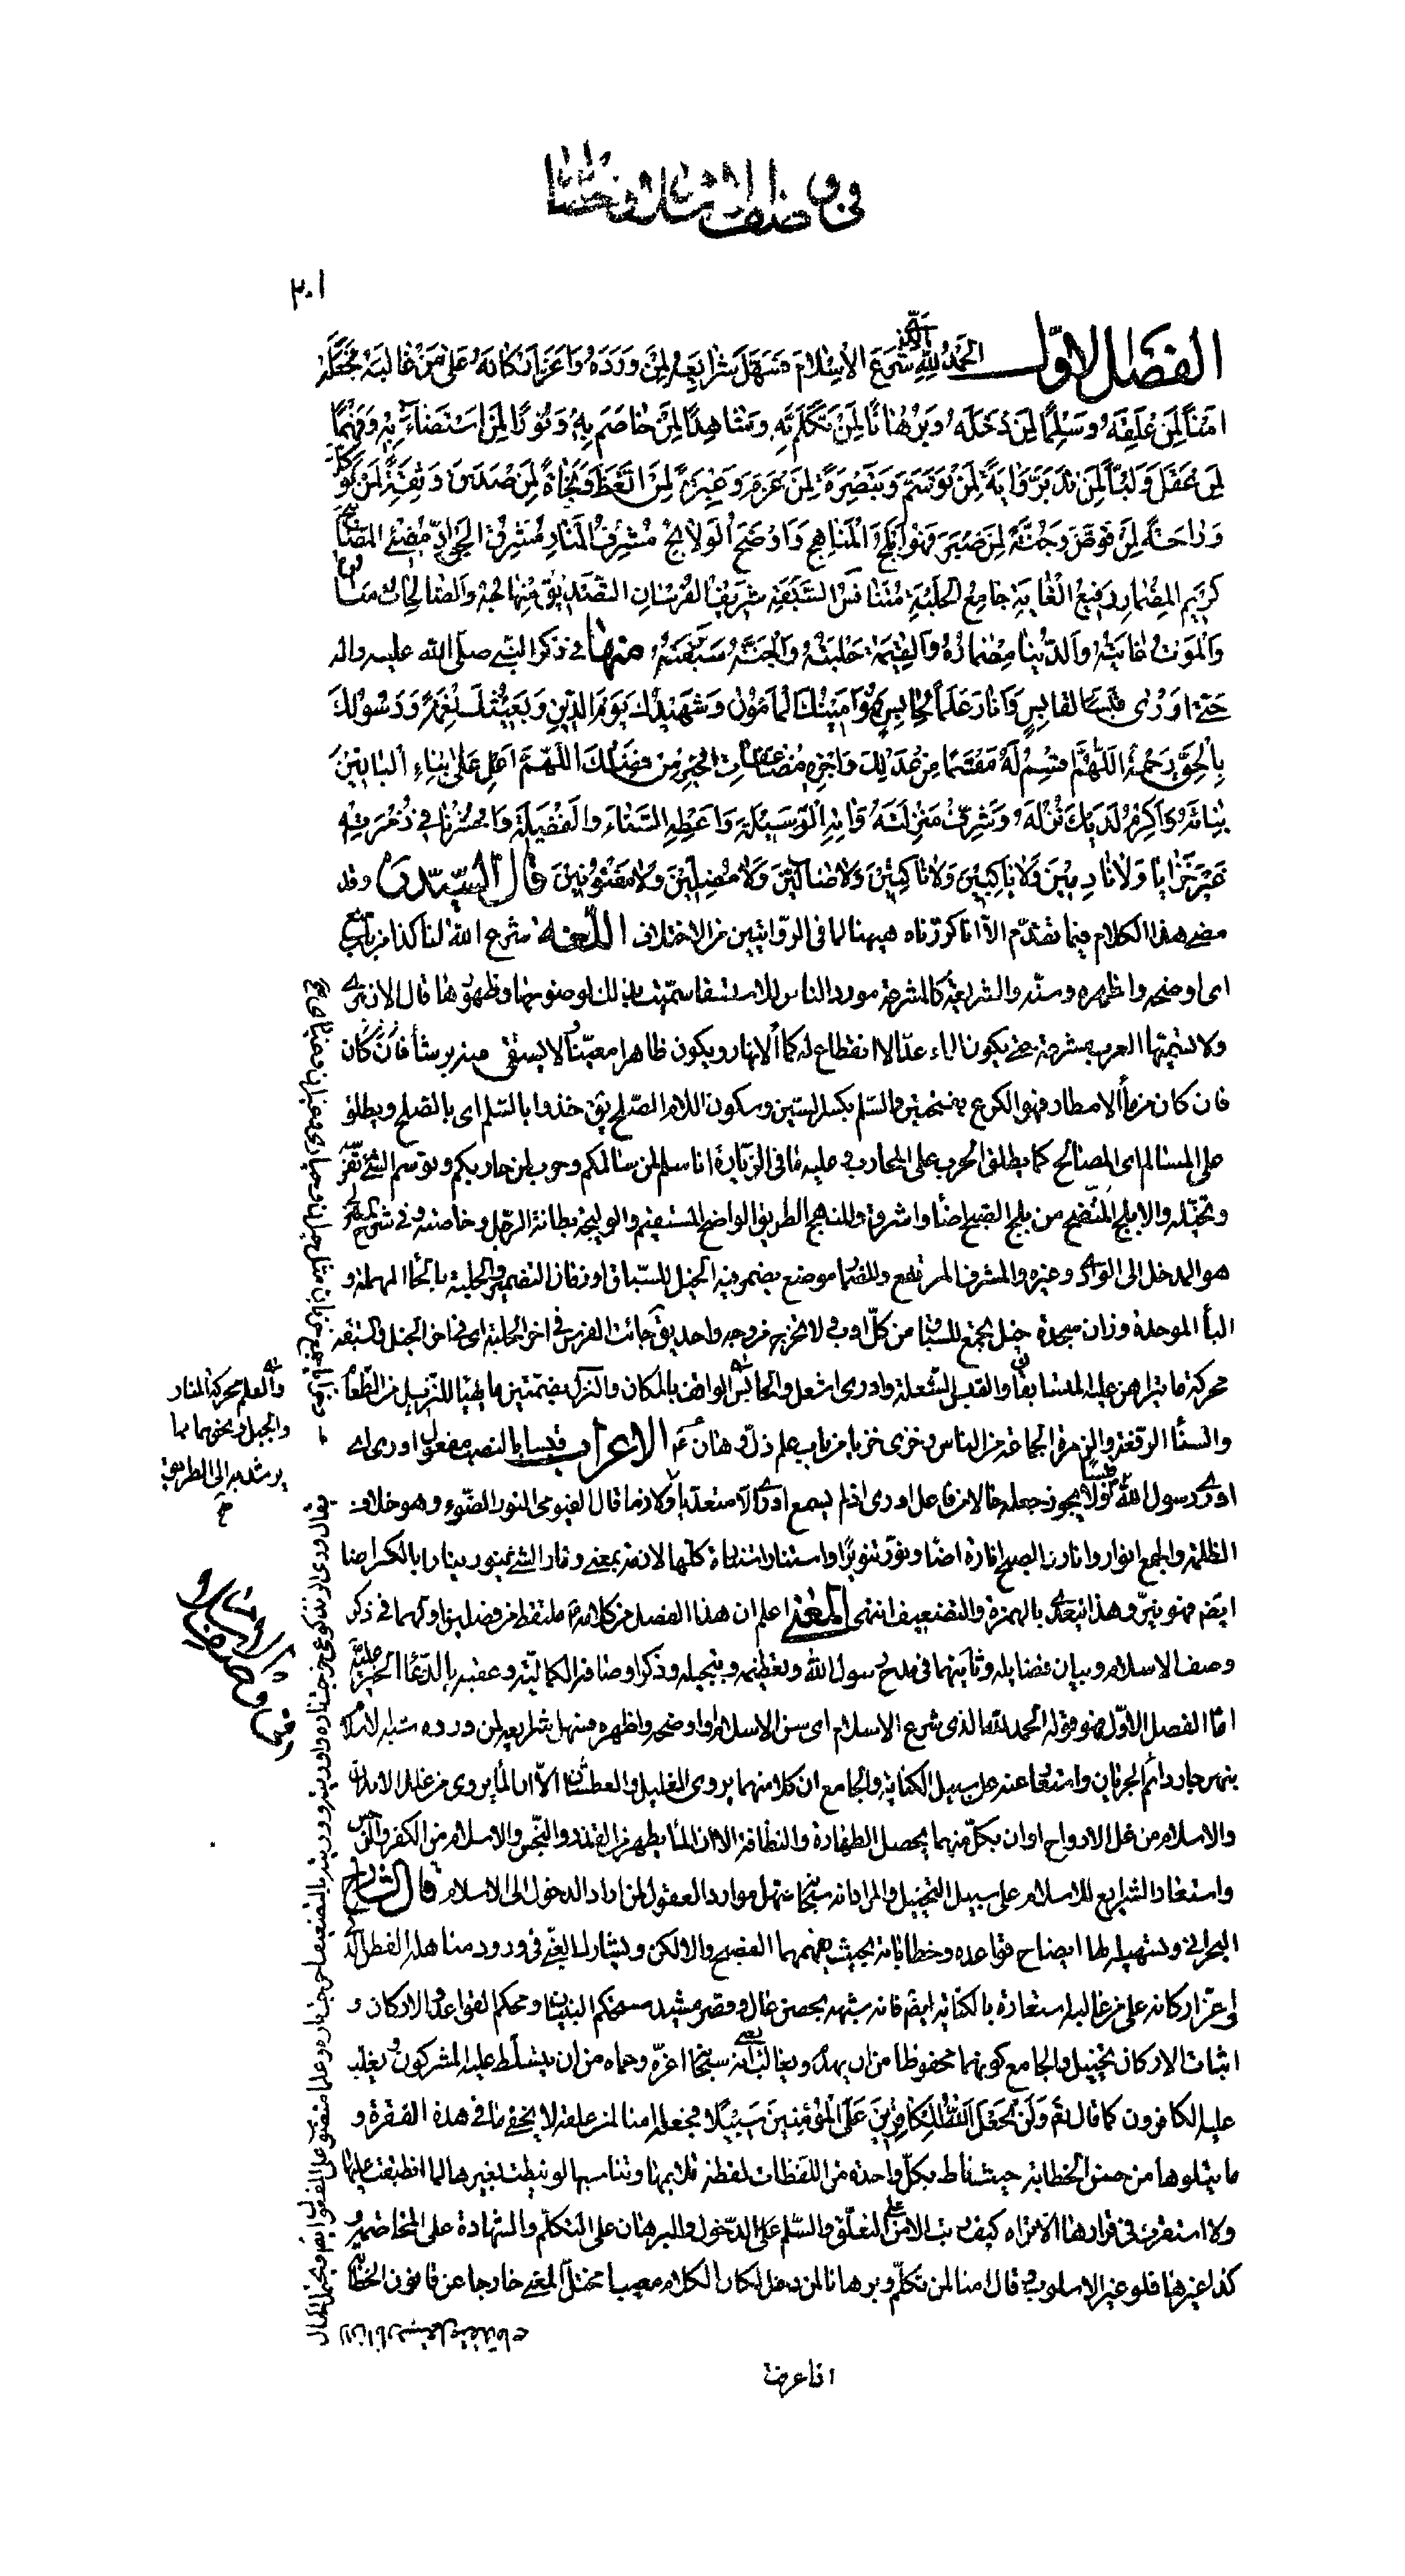 في وصف الاسلام و فضله
٣٠١
الفصل الاول الحمد لله الذي شرع الاسلام فسهل شرايعه لمن ورده واعز اركانه على من غالبه فجعله
امنا لمن علقه وسلما لمن دخله وبرهانا لمن تكلم به وشاهدا لمن خاصم به ونورا لمن استضاء به وفهما
لمن عقل ولبا لمن تدبر واية لمن توسم وتبصرة لمن عزم وعبرة لمن اتعظ ونجاة لمن صدق وثقة لمن توكل
وراحة لمن فوض وجنة لمن صبر فهو ابلج المناهج واوضح الولائج مشرف المنار مشرق الجواد مضيئ المصابيح
كريم المضمار رفيع الغاية جامع الحلبة متنافس السبقة شريف الفرسان التصديق منهاجه والصالحات مناره
والموت غايته والدنيا مضماره والقيمة حلبته والجنة سبقته منها في ذكر النبي صلى الله عليه واله
حتى اورى قبسا لقابس وانار علما لحابس فهو امينك المأمون وشهيدك يوم الدين وبعيثك نعمة ورسولك
بالحق رحمة اللهم اقسم له مقسما من عدلك واجزه مضاعفات الخير من فضلك اللهم اعل على بناء البانين
بنائه واكرم لديك نزله وشرف منزلته واته الوسيلة واعطه السناء والفضيلة واحشرنا في زمرته
غير خزايا ولا نادمين ولا ناكبين ولا ناكثين ولا ضالين ولا مضلين ولا مفتونين قال السيد ره وقد
مضى هذا الكلام فيما تقدم الا انا كررناه هيهنا لما في الروايتين من الاختلاف اللغة شرع الله لنا كذا من باب منع
اى اوضحه واظهره وسنه والشريعة كالمشرعة مورد الناس للاستسقاء سميت بذلك لوضوحها وظهورها قال الازهري
ولا تسميها العرب مشرعة حتى يكون الماء عدا لا انقطاع له كماء الانهار ويكون ظاهرا معينا ولا يستقى منه برشاء
فان كان من ماء الامطار فهو الكرع بفتحتين والسلم بكسر السين وسكون اللام الصلح يق خذوا بالسلم اى بالصلح ويطلق
على المسالم اى المصالح كما يطلق الحرب على المحارب وعليه ما في الزيارة انا سلم لمن سالمكم وحرب لمن حاربكم وتوسم الشئ تفرسه
وتخيله والابلج المتضح من بلج الصبح اضاء واشرق والمنهج الطريق الواضح المستقيم والوليجة بطانة الرجل وخاصته وفي شرح المعتزلي
هو المدخل الى الوادي وغيره والمشرف المرتفع والمضمار موضع يضمر فيه الخيل للسباق او زمان التضمير والحلبة بالحاء المهملة و
الباء الموحدة وزان سجدة خيل تجمع للسباق من كل اوب ولا تخرج من وجه واحد يق جائت الفرس في اخر الحلبة اى في اخر الخيل والسبقة
محركة ما يتراهن عليه المتسابقان والقبس الشعلة واورى اشعل والحابس الواقف بالمكان والنزل بضمتين ما يهيأ للنزيل من الطعام
والسناء الرفعة والزمرة الجماعة من الناس وخزى خزيا من باب علم ذل وهان الاعراب قبسا بالنصب مفعول اورى اى
اورى رسول الله قبسا ولا يجوز جعله حالا من فاعل اورى اذ لم يسمع اورى الا متعديا ولازما قال الفيومي النور الضوء وهو خلاف
الظلمة والجمع انوار وانار الصبح انارة اضاء ونور تنويرا واستنار استنارة كلها لازمة بمعنى ونار الشئ ينور نيارا بالكسر اضاء
ايضا فهو نير وهذا يتعدى بالهمزة والتضعيف انتهى المعنى اعلم ان هذا الفصل من كلامه ملتقط من فصلين اولهما في ذكر
وصف الاسلام وبيان فضايله وثانيهما في مدح رسول الله وتعظيمه وتبجيله وذكر اوصافه الكمالية وعقبه بالدعاء الخير
اما الفصل الاول فهو قوله الحمد لله الذى شرع الاسلام اى سن الاسلام واوضحه واظهره فسهل شرايعه لمن ورده شبه الاسلام
بنهر جار دائم الجريان واستعار عنه على سبيل الكناية والجامع ان كلا منهما يروى الغليل والعطشان الا ان الماء يروى من غلل الابدان
والاسلام من غلل الارواح او ان بكل منهما يحصل الطهارة والنظافة الا ان الماء يطهر من القذر والنجس والاسلام من الكفر والرجس
واستعار الشرايع للاسلام على سبيل التخييل والمراد انه سبحانه سهل موارد العقول لمن اراد الدخول الى الاسلام قال الشارح
البحراني وتسهيله لها ايضاح قواعده وخطاباته بحيث يفهمها الفصيح والالكن ويشارك الغبى في ورود مناهله الفطن الذكى
واعز اركانه على من غالبه استعارة بالكناية ايضا فانه شبهه بحصن عال وقصر مشيد مستحكم البنيان ومحكم القواعد والاركان و
اثبات الاركان تخييل والجامع كونهما محفوظا من ان يهدم ويغالب يعنى انه سبحانه اعزه وحماه من ان يتسلط عليه المشركون ويغلب
عليه الكافرون كما قال تعم ولن يجعل الله للكافرين على المؤمنين سبيلا فجعله امنا لمن علقه لا يخفى ما في هذه الفقرة و
ما يتلوها من حسن الخطابة حيث ناط بكل واحدة من اللفظات لفظة تلايمها وتناسبها لو نيطت بغيرها لما انطبقت عليها
ولا استقرت في قرارها الا تراه كيف رتب الامن على التعلق والسلم على الدخول والبرهان على التكلم والشهادة على المخاصمة و
كذا غيرها فلو غير الاسلوب وقال امنا لمن تكلم وبرهانا لمن دخل لكان الكلام معيبا مختل المعنى خارجا عن قانون الخطابة
اذا عرفت
والعلم محركة المنار
والجبل ونحوهما مما
يرشد به الى الطريق